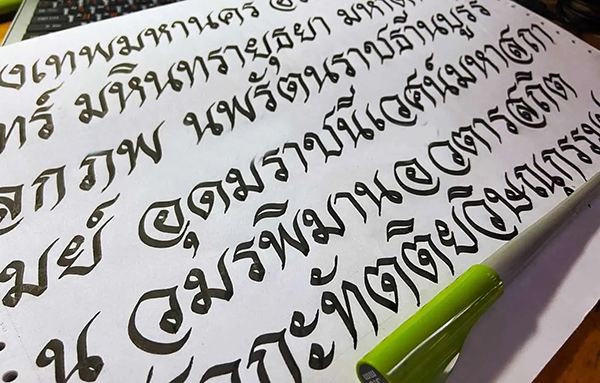 งเทพมหานคร อ
ทร์ มหินทรายุธยา มหาดิ
ลกภพ นพรัตนราชธานีบูรีร
มย์ อุดมราชนิเวศน์มหาสถา
น อมรพิมานอวตารสถิต
กกะทัตติยวิษณุกรรมป